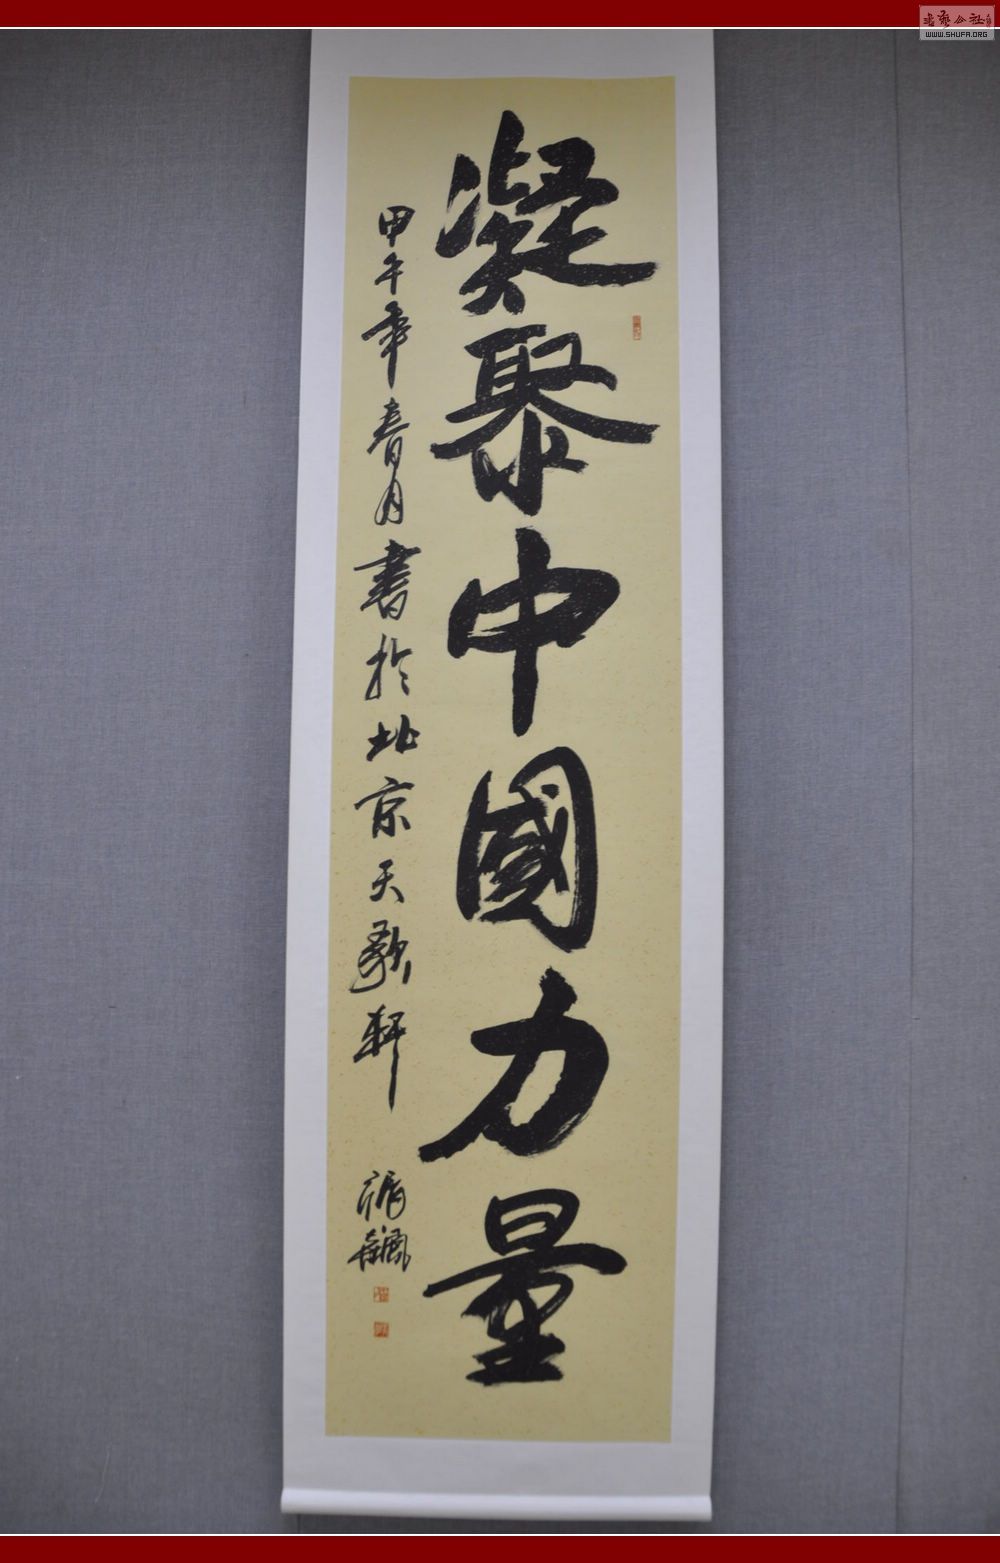 凝聚中國力量
甲午年春月書於北京天歌軒
書藝公社
WWW.SHUFA.ORG